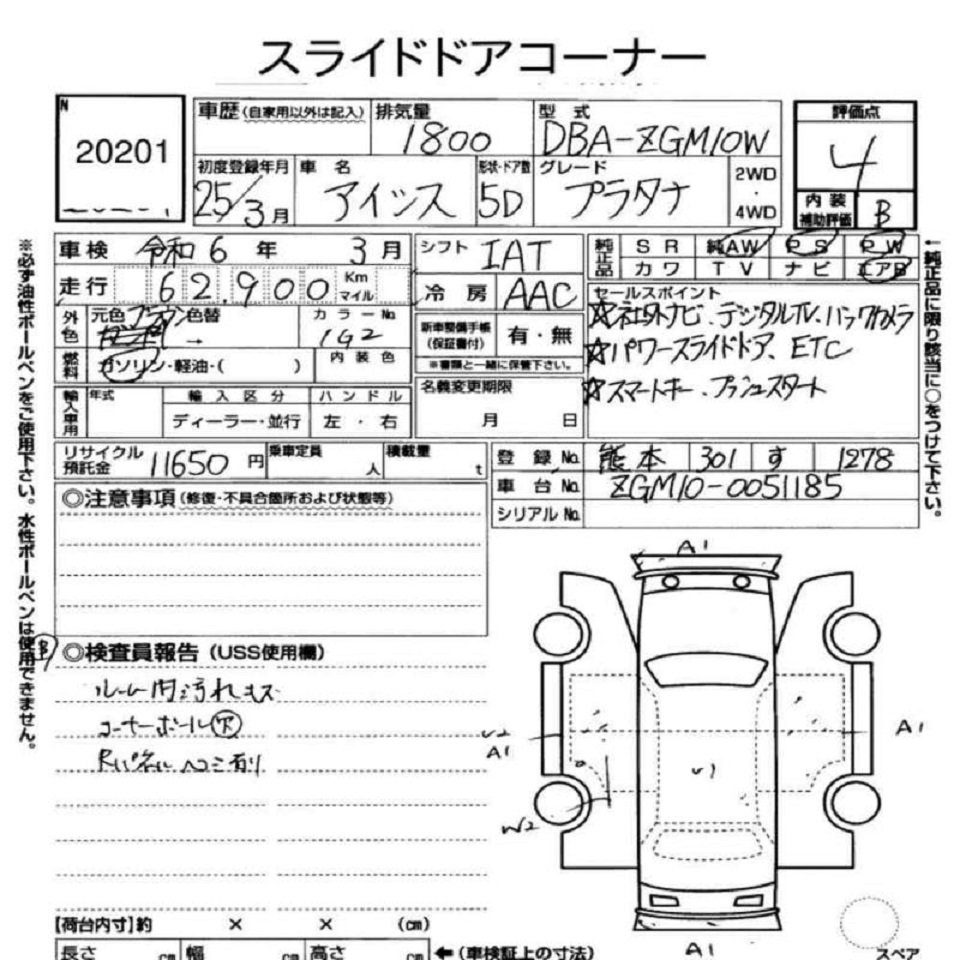 スライドドアコーナー
N
20201
車歴(自家用以外は記入)
排気量
1800
型式
DBA-ZGM10W
評価点
4
初度登録年月
25/3月
車名
アイシス
形状・ドア数
5D
グレード
プラタナ
2WD
・
4WD
内装
補助評価
B
車検 令和6年 3月
シフト IAT
純正品
SR 純AW PS PW
カワ TV ナビ エアB
走行 62,900 Km
マイル
冷房 AAC
セールスポイント
☆社外ナビ、デジタルTV、バックカメラ
☆パワースライドドア、ETC
☆スマートキー、プッシュスタート
外色
元色 ブラウン 色替
→
カラーNo
1G2
新車整備手帳
(保証書付)
有・無
※書類と一緒に保管下さい。
燃料
ガソリン・軽油・( )
内装色
名義変更期限
月 日
輸入車用
年式
輸入区分
ディーラー・並行
ハンドル
左・右
リサイクル
預託金
11650円
乗車定員
人
積載量
t
登録No. 熊本 301 す 1278
車台No. ZGM10-0051185
シリアルNo.
◎注意事項(修復・不具合箇所および状態等)
◎検査員報告(USS使用欄)
ルーム内汚れキズ
コーナーポール欠
Rパネルヘコミ有り
A1
A1
A1
W2
U1
A1
【荷台内寸】約 × × (cm)
長さ cm 幅 cm 高さ cm
←(車検証上の寸法)
スペア
※必ず油性ボールペンをご使用下さい。水性ボールペンは使用できません。
←純正品に限り該当に○をつけて下さい。